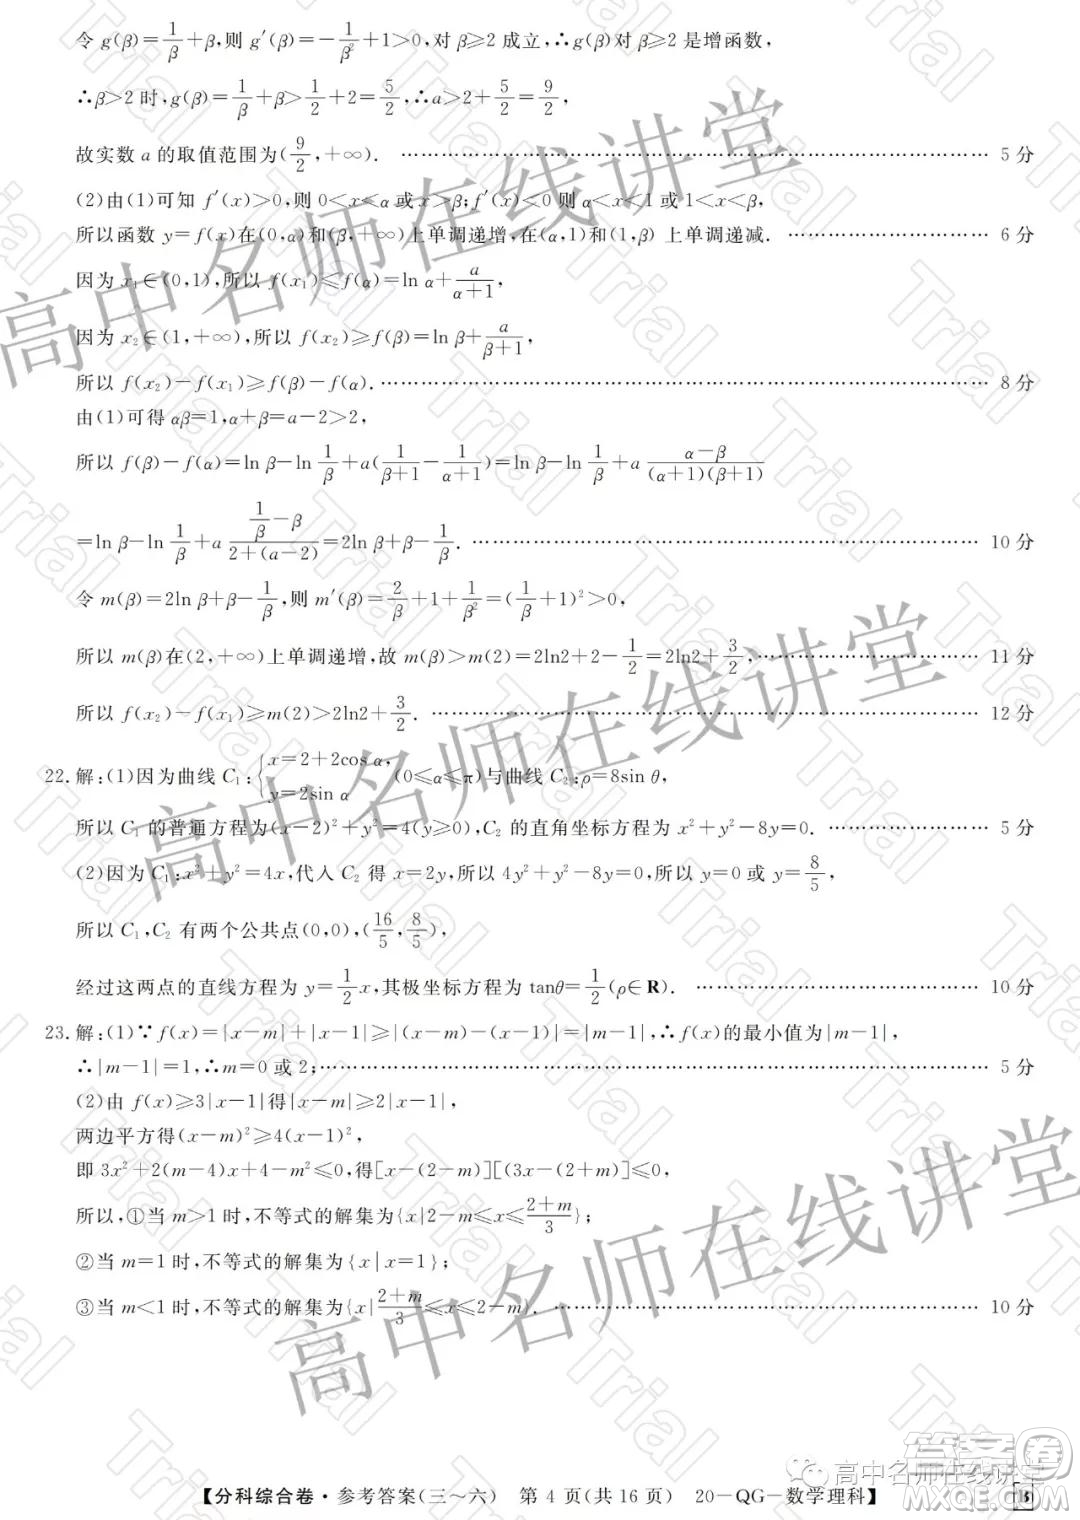 令 g(β)=1/β+β,则 g′(β)=−1/β²+1>0,对 β≥2 成立,∴g(β)对 β≥2 是增函数,
∴β>2 时,g(β)=1/β+β>1/2+2=5/2,∴a>2+5/2=9/2,
故实数 a 的取值范围为(9/2,+∞). ………… 5 分
(2)由(1)可知 f′(x)>0,则 0<x<α或 x>β;f′(x)<0 则 α<x<1 或 1<x<β,
所以函数 y=f(x)在(0,α)和(β,+∞)上单调递增,在(α,1)和(1,β) 上单调递减. ………… 6 分
因为 x₁∈(0,1),所以 f(x₁)≤f(α)=ln α+a/(α+1),
因为 x₂∈(1,+∞),所以 f(x₂)≥f(β)=ln β+a/(β+1),
所以 f(x₂)−f(x₁)≥f(β)−f(α). ………… 8 分
由(1)可得 αβ=1,α+β=a−2>2,
所以 f(β)−f(α)=ln β−ln 1/β+a(1/(β+1)−1/(α+1))=ln β−ln 1/β+a (α−β)/((α+1)(β+1))
=ln β−ln 1/β+a (1/β−β)/(2+(a−2))=2ln β+β−1/β. ………… 10 分
令 m(β)=2ln β+β−1/β,则 m′(β)=2/β+1+1/β²=(1/β+1)²>0,
所以 m(β)在(2,+∞)上单调递增,故 m(β)>m(2)=2ln2+2−1/2=2ln2+3/2, ………… 11 分
所以 f(x₂)−f(x₁)≥m(2)>2ln2+3/2. ………… 12 分
22.解:(1)因为曲线 C₁:{x=2+2cos α, y=2sin α (0≤α≤π)与曲线 C₂:ρ=8sin θ,
所以 C₁ 的普通方程为(x−2)²+y²=4(y≥0),C₂ 的直角坐标方程为 x²+y²−8y=0. ………… 5 分
(2)因为 C₁:x²+y²=4x,代入 C₂ 得 x=2y,所以 4y²+y²−8y=0,所以 y=0 或 y=8/5,
所以 C₁,C₂ 有两个公共点(0,0),(16/5,8/5),
经过这两点的直线方程为 y=1/2x,其极坐标方程为 tanθ=1/2(ρ∈R). ………… 10 分
23.解:(1)∵f(x)=|x−m|+|x−1|≥|(x−m)−(x−1)|=|m−1|,∴f(x)的最小值为|m−1|,
∴|m−1|=1,∴m=0 或 2; ………… 5 分
(2)由 f(x)≥3|x−1|得|x−m|≥2|x−1|,
两边平方得(x−m)²≥4(x−1)²,
即 3x²+2(m−4)x+4−m²≤0,得[x−(2−m)][(3x−(2+m)]≤0,
所以,①当 m>1 时,不等式的解集为{x|2−m≤x≤(2+m)/3};
②当 m=1 时,不等式的解集为{x|x=1};
③当 m<1 时,不等式的解集为{x|(2+m)/3≤x≤2−m}. ………… 10 分
高中名师在线讲堂
高中名师在线讲堂
高中名师在线讲堂
Trial
答案卷
高中名师在线讲堂
【分科综合卷·参考答案(三~六) 第 4 页(共 16 页) 20−QG−数学理科】
B